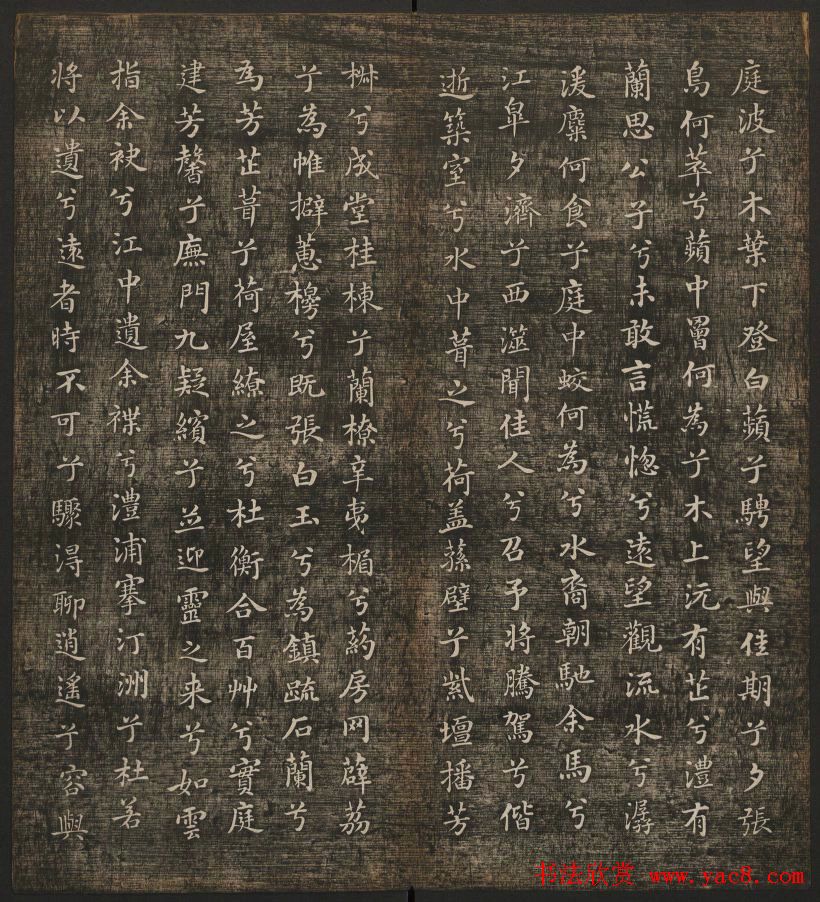 庭波兮木葉下登白蘋兮騁望與佳期兮夕張
鳥何萃兮蘋中罾何為兮木上沅有芷兮澧有
蘭思公子兮未敢言慌惚兮遠望觀流水兮潺
湲麋何食兮庭中蛟何為兮水裔朝馳余馬兮
江皐夕濟兮西澨聞佳人兮召予將騰駕兮偕
逝築室兮水中葺之兮荷盖蓀壁兮紫壇播芳
椒兮成堂桂棟兮蘭橑辛夷楣兮葯房网薜荔
兮為帷擗蕙櫋兮既張白玉兮為鎮疏石蘭兮
為芳芷葺兮荷屋繚之兮杜衡合百艸兮實庭
建芳馨兮廡門九疑繽兮並迎靈之来兮如雲
指余袂兮江中遺余褋兮澧浦搴汀洲兮杜若
將以遺兮遠者時不可兮驟得聊逍遙兮容與
书法欣赏 www.yac8.com